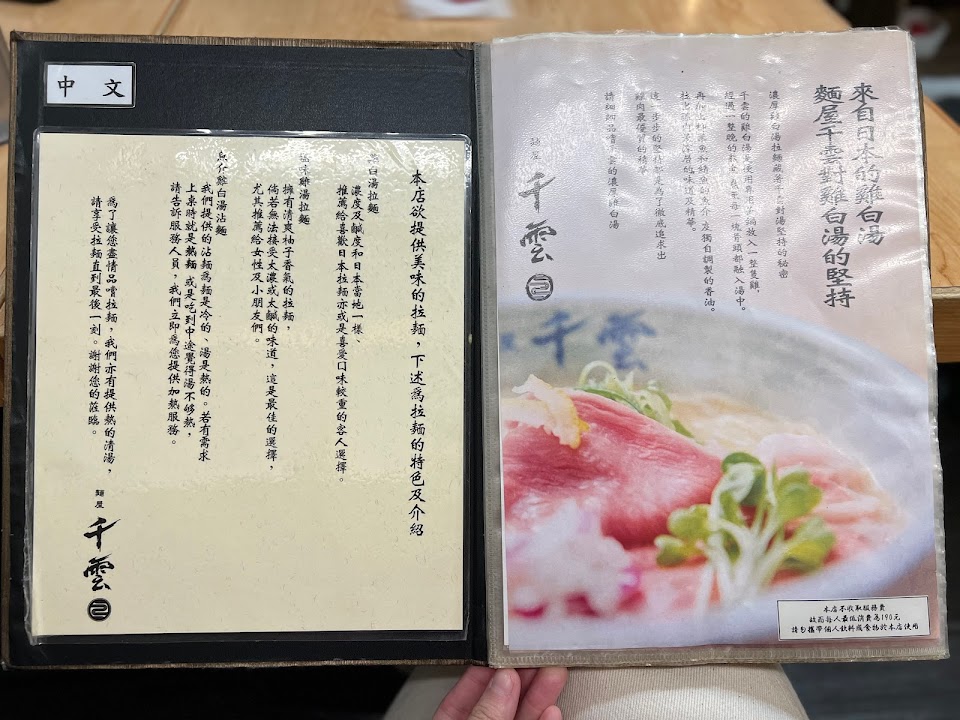 中文
本店欲提供美味的拉麵，下述為拉麵的特色及介紹
白湯拉麵
濃度及鹹度和日本當地一樣、
推薦給喜歡日本拉麵亦或是喜愛口味較重的客人選擇。
雞湯拉麵
擁有清爽柚子香氣的拉麵，
倘若無法接受太濃或太鹹的味道，這是最佳的選擇，
尤其推薦給女性及小朋友們。
魚介雞白湯沾麵
我們提供的沾麵為麵是冷的、湯是熱的。若有需求
上桌時就是熱麵 或是吃到中途覺得湯不夠熱，
請告訴服務人員，我們立即為您提供加熱服務。
為了讓您盡情品嚐拉麵，我們亦有提供熱的清湯，
請享受拉麵直到最後一刻。謝謝您的蒞臨。
麵屋
千雲
來自日本的雞白湯
麵屋千雲對雞白湯的堅持
濃厚雞白湯拉麵藏著千雲對湯堅持的秘密
千雲的雞白湯是使用專用壺鍋放入一整隻雞，
經過一整晚的熬煮 每一塊骨頭都融入湯中。
再加上 魚和鯖魚的魚介 及獨自調製的香油。
的味道及精華。
這一步步的堅持都是為了徹底追求出
雞肉最優質的精華
請細細品嚐 的濃厚雞白湯
麵屋
千雲
千雲
本店不收取服務費
故而每人最低消費為190元
請勿攜帶個人飲料或食物於本店使用